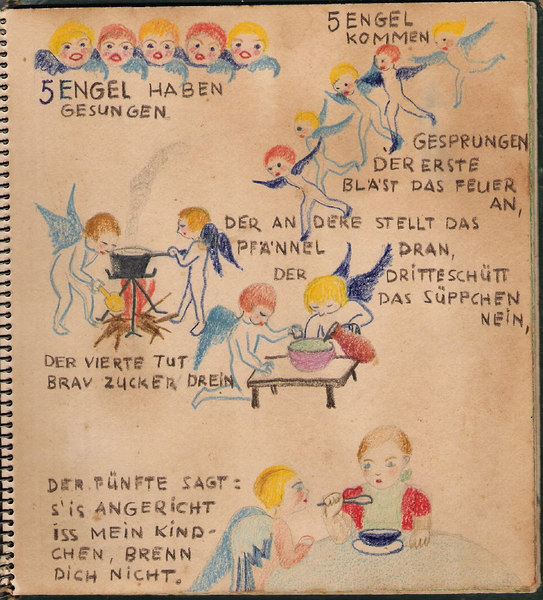 5 ENGEL HABEN
GESUNGEN
5 ENGEL
KOMMEN
GESPRUNGEN
DER ERSTE
BLÄST DAS FEUER
AN,
DER ANDEKE STELLT DAS
PFÄNNEL DRAN,
DER DRITTESCHÜTT
DAS SÜPPCHEN
NEIN,
DER VIERTE TUT
BRAV ZUCKER DREIN
DER FÜNFTE SAGT:
S'IS ANGERICHT
ISS MEIN KIND-
CHEN, BRENN
DICH NICHT.